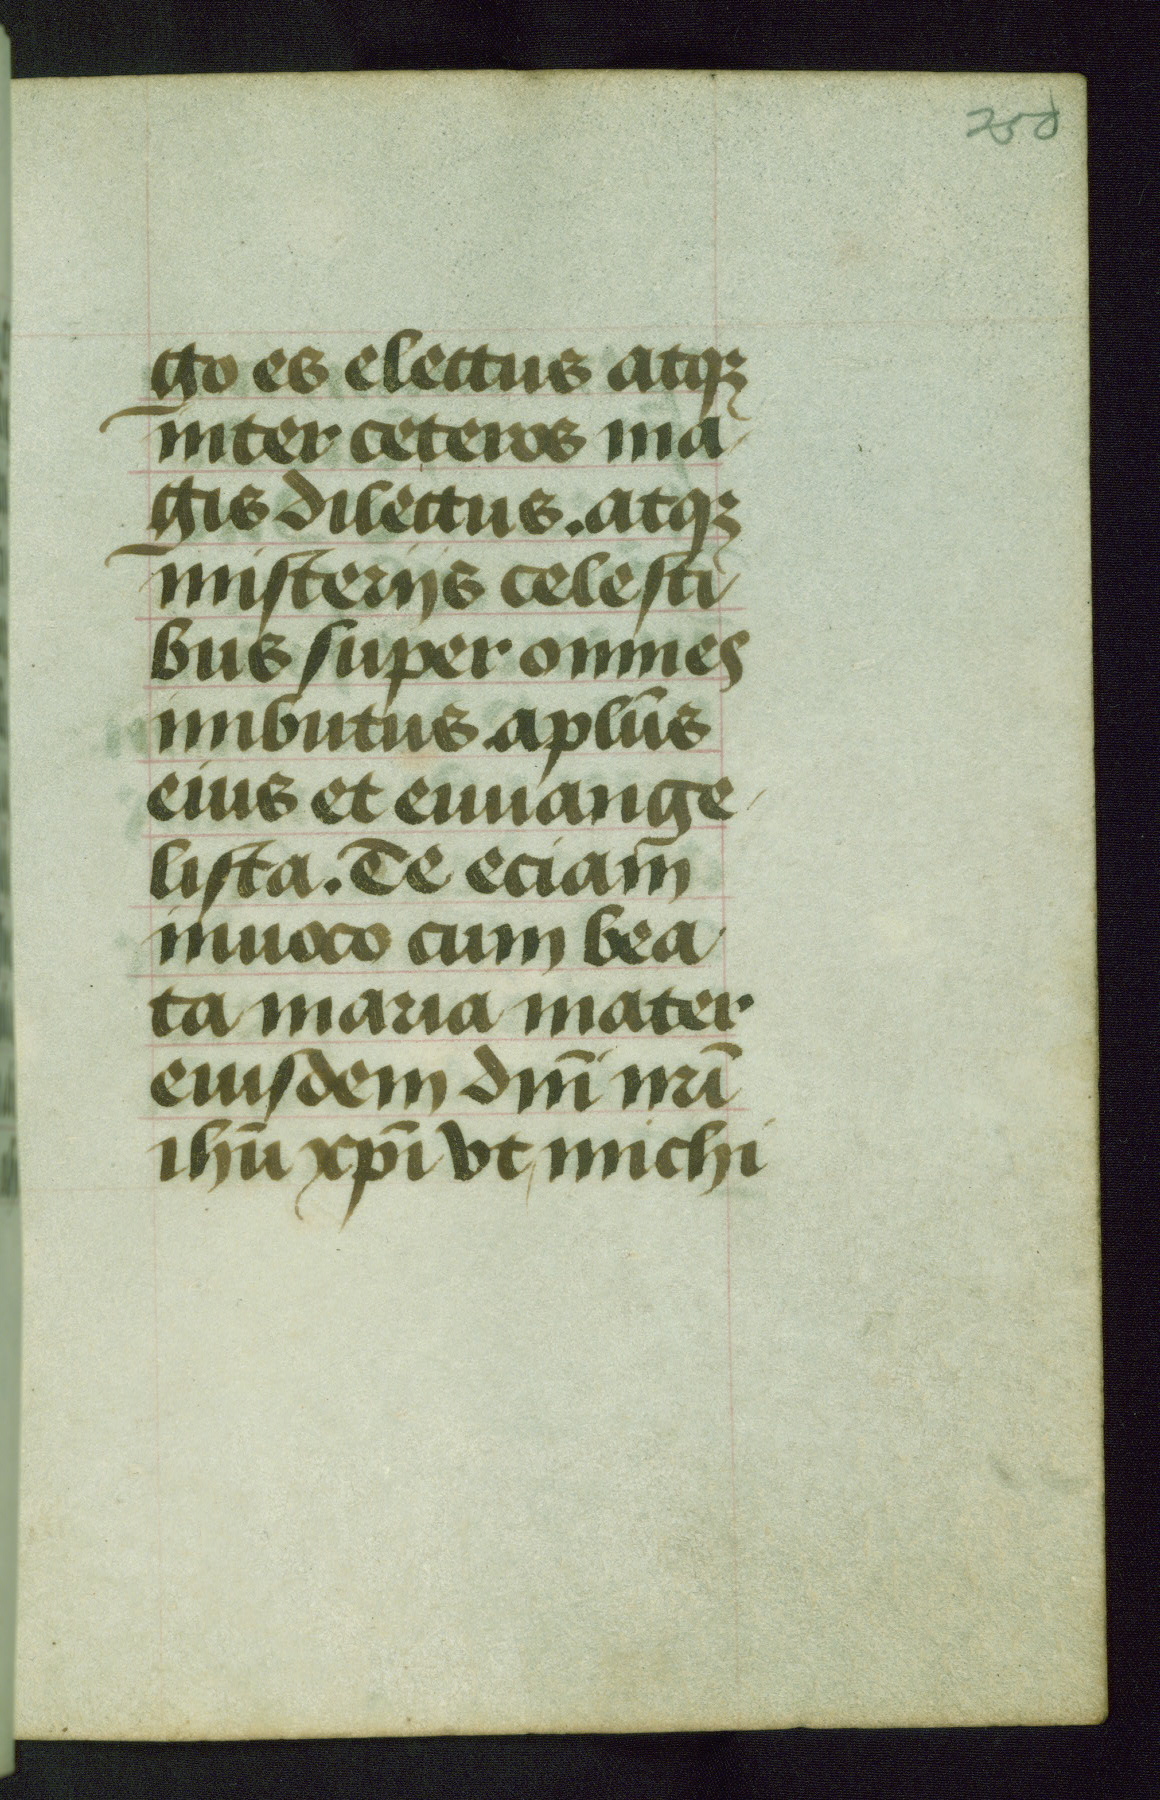 250
go es electus atqꝫ
inter ceteros ma
gis dilectus. atqꝫ
misterijs celesti
bus super omnes
imbutus aplūs
eius et euuange
lista. Te eciam̄
inuoco cum bea
ta maria mater
eiusdem dnī nrī
ihū xpī vt michi